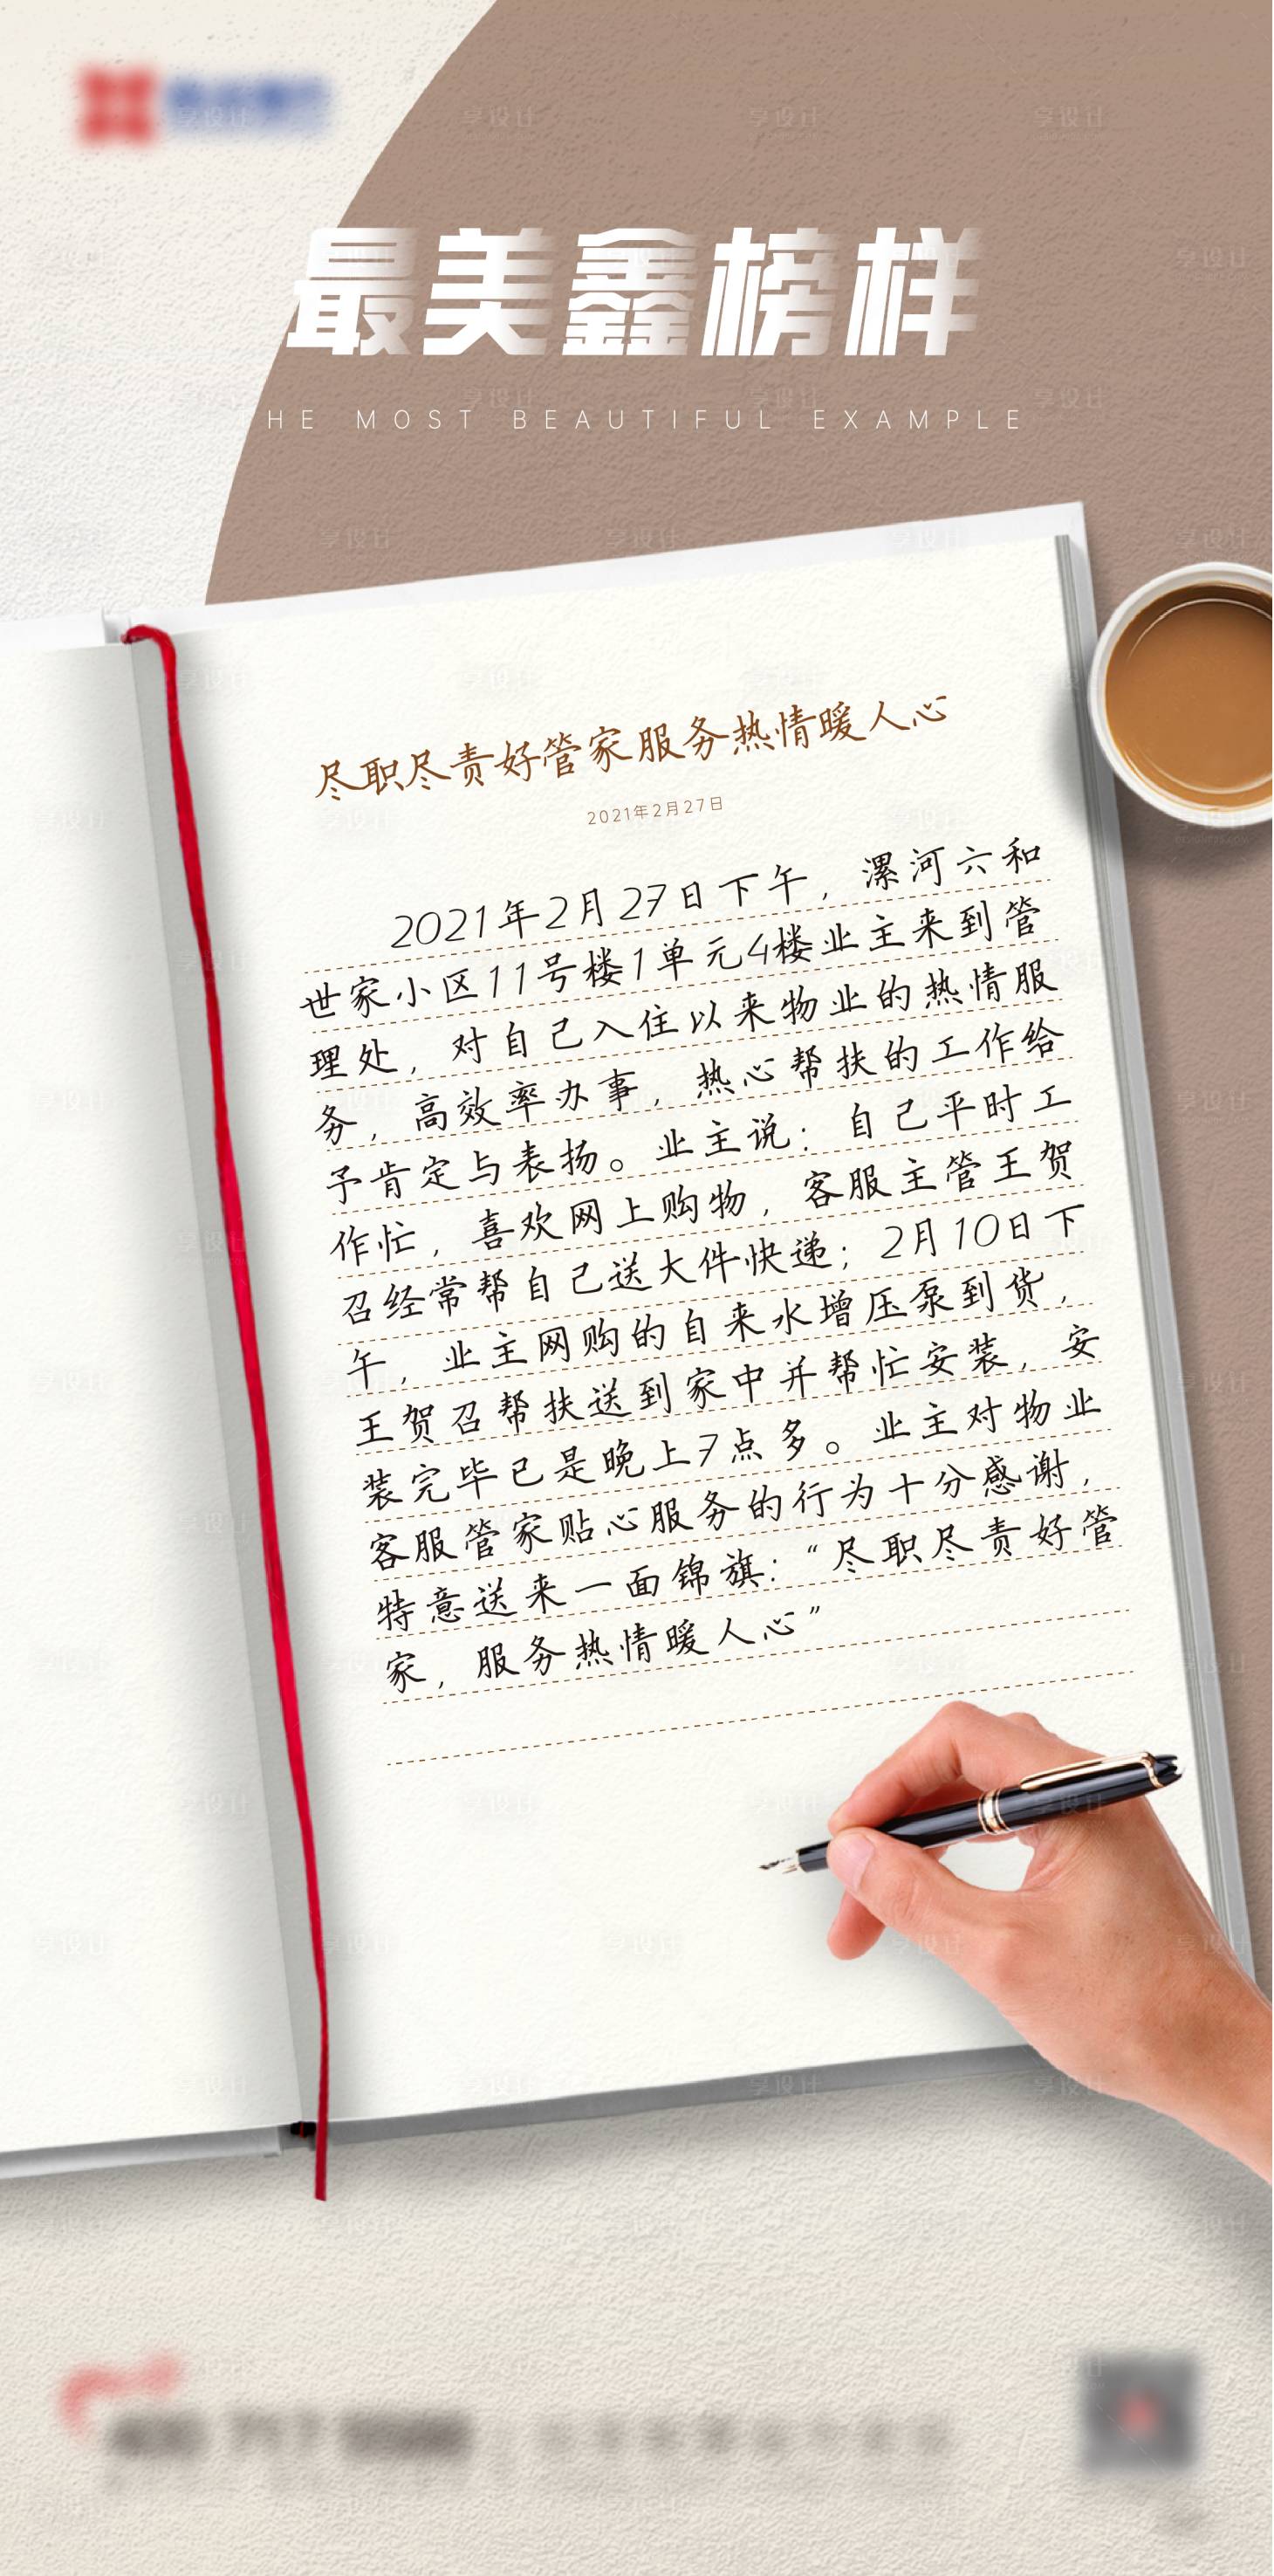 最美鑫榜样
THE MOST BEAUTIFUL EXAMPLE
尽职尽责好管家服务热情暖人心
2021年2月27日
2021年2月27日下午，漯河六和
世家小区11号楼1单元4楼业主来到管
理处，对自己入住以来物业的热情服
务，高效率办事，热心帮扶的工作给
予肯定与表扬。业主说：自己平时工
作忙，喜欢网上购物，客服主管王贺
召经常帮自己送大件快递；2月10日下
午，业主网购的自来水增压泵到货，
王贺召帮扶送到家中并帮忙安装，安
装完毕已是晚上7点多。业主对物业
客服管家贴心服务的行为十分感谢，
特意送来一面锦旗：“尽职尽责好管
家，服务热情暖人心”
享设计